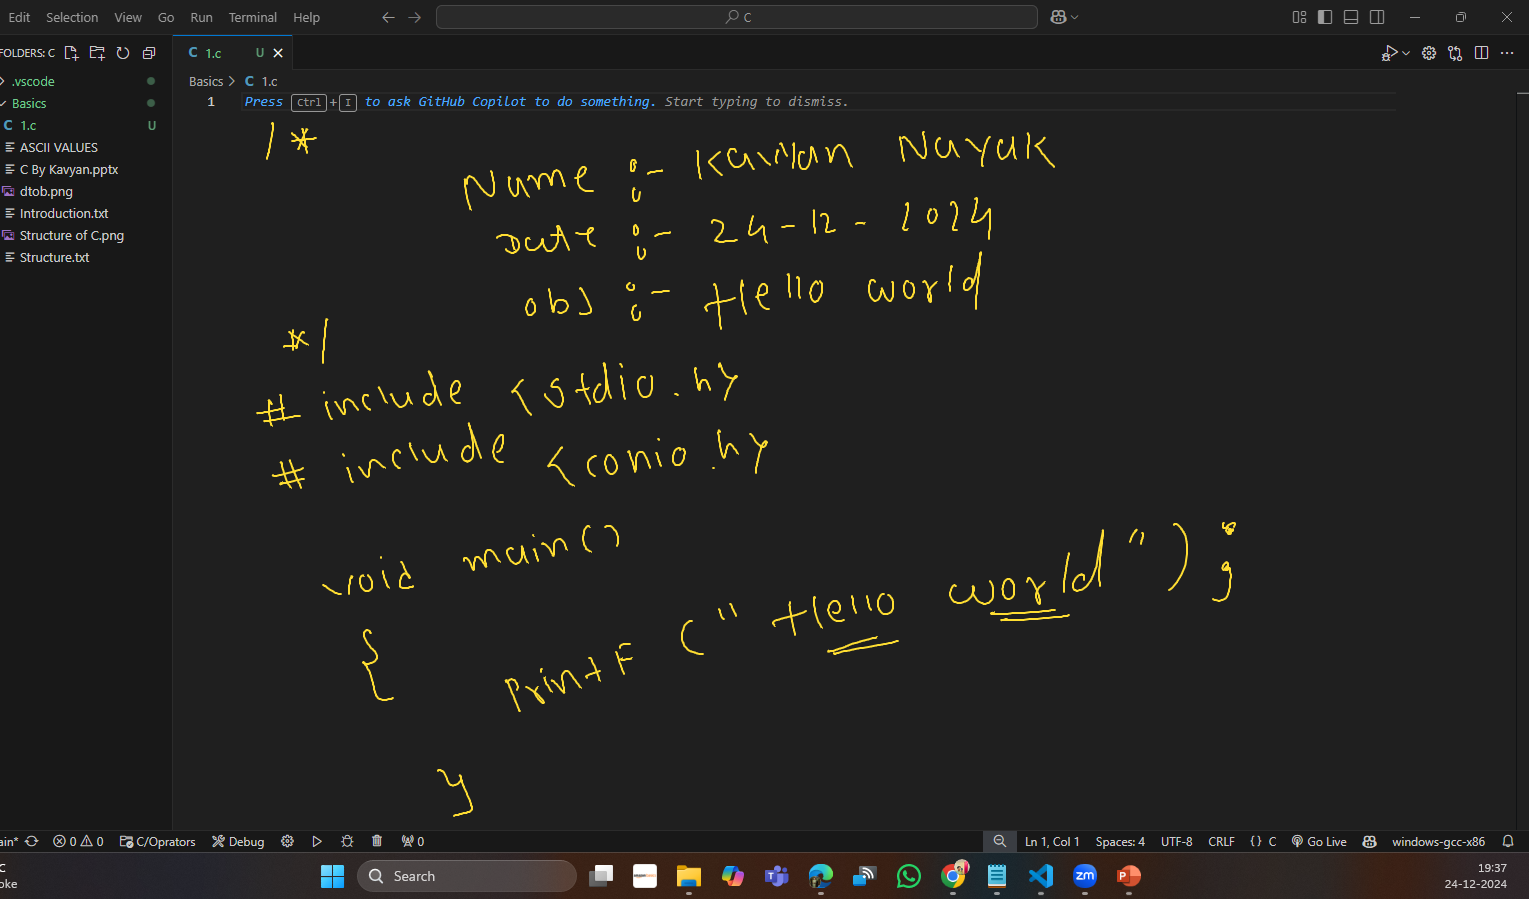 Edit Selection View Go Run Terminal Help C
FOLDERS: C
.vscode
Basics
1.c U
ASCII VALUES
C By Kavyan.pptx
dtob.png
Introduction.txt
Structure of C.png
Structure.txt
C 1.c U
Basics > C 1.c
1 Press Ctrl + I to ask GitHub Copilot to do something. Start typing to dismiss.
/*
Name :- Kavyan Nayak
Date :- 24-12-2024
obj :- Hello world
*/
# include <stdio.h>
# include <conio.h>
void main()
{
printf ("Hello world");
}
ain* 0 0 C/Oprators Debug 0 Ln 1, Col 1 Spaces: 4 UTF-8 CRLF {} C Go Live windows-gcc-x86
C
oke
Search
zm
19:37
24-12-2024